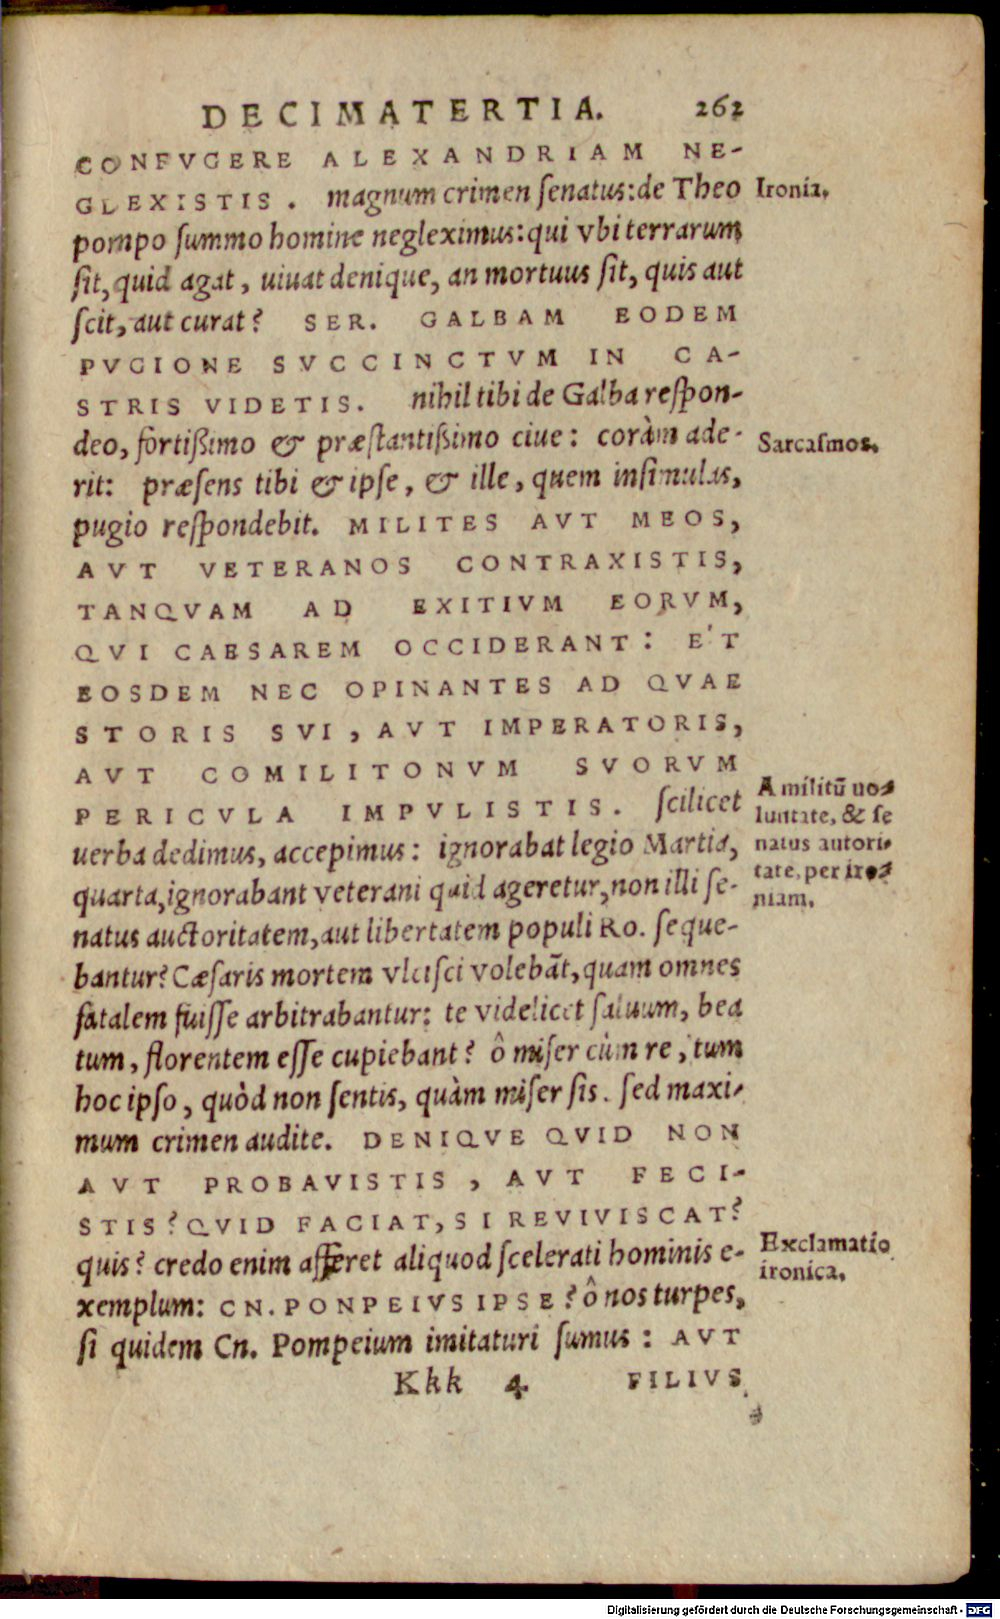 DECIMATERTIA. 262
CONFVGERE ALEXANDRIAM NE-
GLEXISTIS. magnum crimen ſenatus: de Theo
Ironia.
pompo ſummo homine negleximus: qui vbi terrarum
ſit, quid agat, uiuat denique, an mortuus ſit, quis aut
ſcit, aut curat? SER. GALBAM EODEM
PVGIONE SVCCINCTVM IN CA-
STRIS VIDETIS. nihil tibi de Galba reſpon-
deo, fortißimo & præſtantißimo ciue: coràm ade-
Sarcaſmos.
rit: præſens tibi & ipſe, & ille, quem inſimulas,
pugio reſpondebit. MILITES AVT MEOS,
AVT VETERANOS CONTRAXISTIS,
TANQVAM AD EXITIVM EORVM,
QVI CAESAREM OCCIDERANT: ET
EOSDEM NEC OPINANTES AD QVAE
STORIS SVI, AVT IMPERATORIS,
AVT COMILITONVM SVORVM
PERICVLA IMPVLISTIS. ſcilicet
A militū uo-
luntate, & ſe
natus autori-
tate, per iro-
niam.
uerba dedimus, accepimus: ignorabat legio Martia,
quarta, ignorabant veterani quid ageretur, non illi ſe-
natus auctoritatem, aut libertatem populi Ro. ſeque-
bantur? Cæſaris mortem vlciſci volebāt, quam omnes
fatalem fuiſſe arbitrabantur: te videlicet ſaluum, bea
tum, florentem eſſe cupiebant? ô miſer cùm re, tum
hoc ipſo, quòd non ſentis, quàm miſer ſis. ſed maxi-
mum crimen audite. DENIQVE QVID NON
AVT PROBAVISTIS, AVT FECI-
STIS? QVID FACIAT, SI REVIVISCAT?
quis? credo enim afferet aliquod ſcelerati hominis e-
Exclamatio
ironica.
xemplum: CN. PONPEIVS IPSE? ô nos turpes,
ſi quidem Cn. Pompeium imitaturi ſumus: AVT
Kkk 4 FILIVS
Digitalisierung gefördert durch die Deutsche Forschungsgemeinschaft - DFG